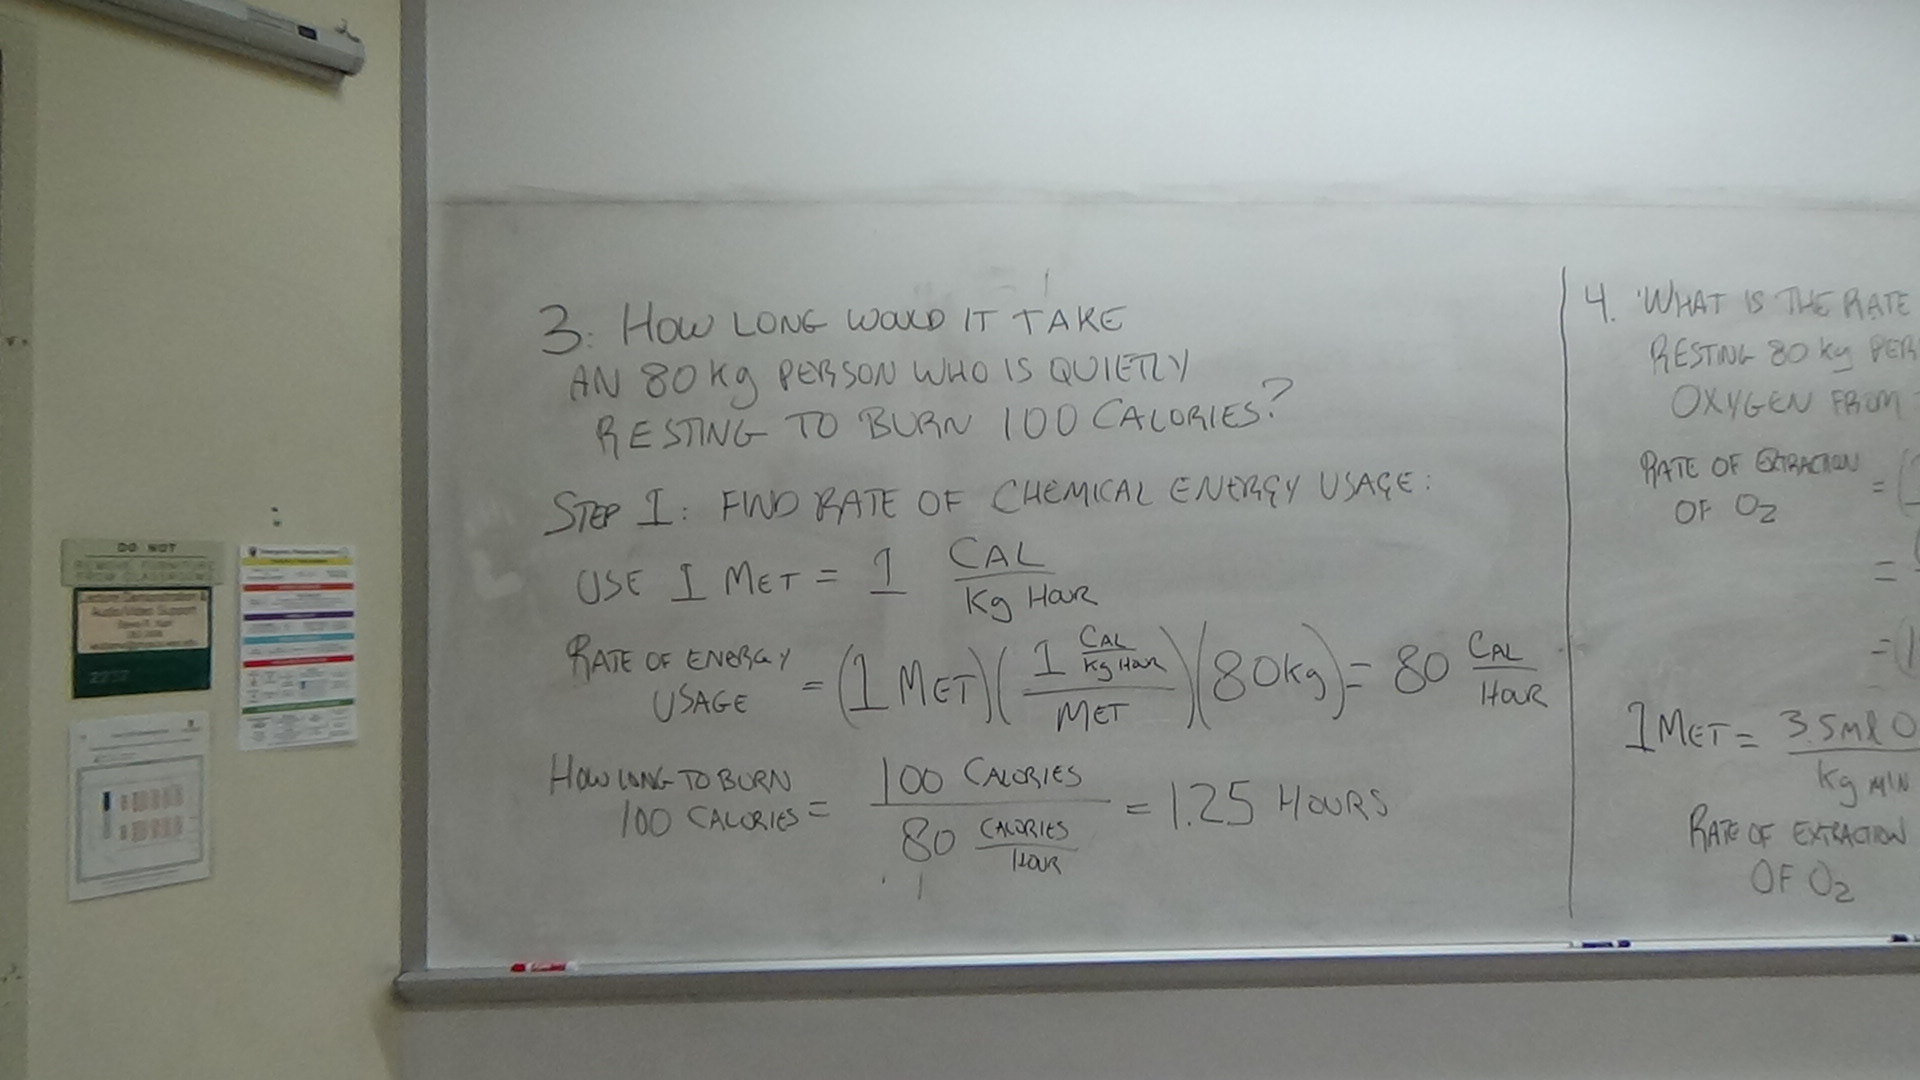 3. HOW LONG WOULD IT TAKE
AN 80 kg PERSON WHO IS QUIETLY
RESTING TO BURN 100 CALORIES?
STEP 1: FIND RATE OF CHEMICAL ENERGY USAGE:
USE 1 MET = 1 CAL / Kg HOUR
RATE OF ENERGY USAGE = (1 MET)(1 CAL/Kg HOUR / MET)(80kg) = 80 CAL / HOUR
HOW LONG TO BURN 100 CALORIES = 100 CALORIES / 80 CALORIES/HOUR = 1.25 HOURS
4. WHAT IS THE RATE
RESTING 80 kg PER
OXYGEN FROM
RATE OF EXTRACTION
OF O2 = (
=
= (
1 MET = 3.5 ml O / kg MIN
RATE OF EXTRACTION
OF O2
DO NOT
REMOVE FURNITURE
FROM CLASSROOM
Lecture Demonstration &
Audio/Video Support